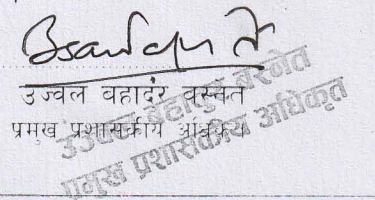 उज्वल बहादुर बस्नेत
प्रमुख प्रशासकीय अधिकृत
उज्वल बहादुर बस्नेत
प्रमुख प्रशासकीय अधिकृत